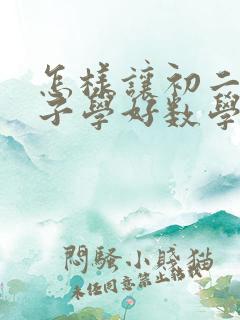 怎樣讓初二
子學好数學
悶騷小賤猫
未经同意禁止转载